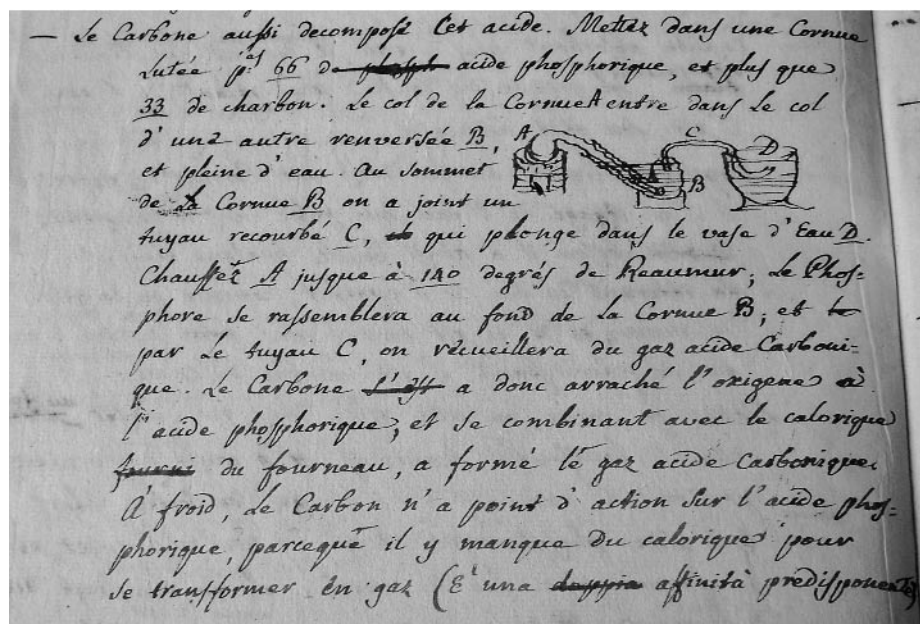 — Le Carbone aussi decompose cet acide. Mettez dans une Cornue
lutée p.es 66 de acide phosphorique, et plus que
33 de charbon. Le col de la Cornue A entre dans le col
d'une autre renversée B,
et pleine d'eau. Au sommet
de la Cornue B on a joint un
tuyau recourbé C, qui plonge dans le vase d'Eau D.
Chauffez A jusque à 140 degrés de Reaumur; le Phos=
phore se rassemblera au fond de la Cornue B; et
par le tuyau C, on recueillera du gaz acide Carboni=
que. Le Carbone a donc arraché l'oxigene à
l'acide phosphorique, et se combinant avec le calorique
fourni du fourneau, a formé le gaz acide Carbonique.
A froid, le Carbon n'a point d'action sur l'acide phos=
phorique, parceque il y manque du calorique pour
se transformer en gaz (E' una doppia affinità predisponente)
A
C
D
B